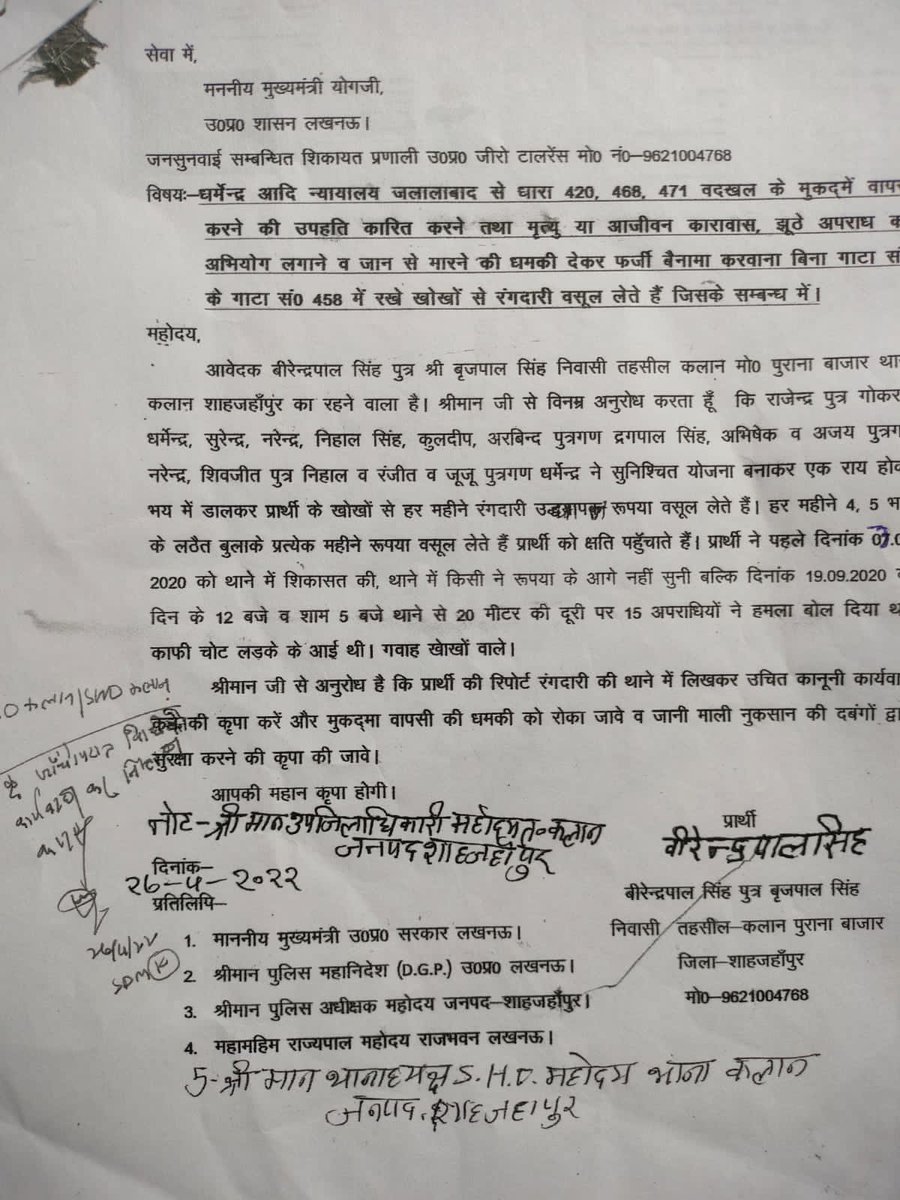 सेवा में,
मननीय मुख्यमंत्री योगजी,
उ0प्र0 शासन लखनऊ।
जनसुनवाई सम्बन्धित शिकायत प्रणाली उ0प्र0 जीरो टालरेंस मो0 नं0–9621004768
विषयः–धर्मेन्द्र आदि न्यायालय जलालाबाद से धारा 420, 468, 471 वदखल के मुकद्में वापस
करने की उपहति कारित करने तथा मृत्यु या आजीवन कारावास, झूठे अपराध क
अभियोग लगाने व जान से मारने की धमकी देकर फर्जी बैनामा करवाना बिना गाटा सं
के गाटा सं0 458 में रखे खोखों से रंगदारी वसूल लेते हैं जिसके सम्बन्ध में।
महोदय,
आवेदक बीरेन्द्रपाल सिंह पुत्र श्री बृजपाल सिंह निवासी तहसील कलान मो0 पुराना बाजार थान
कलान शाहजहाँपुर का रहने वाला है। श्रीमान जी से विनम्र अनुरोध करता हूँ कि राजेन्द्र पुत्र गोकर
धर्मेन्द्र, सुरेन्द्र, नरेन्द्र, निहाल सिंह, कुलदीप, अरबिन्द पुत्रगण द्रगपाल सिंह, अभिषेक व अजय पुत्रग
नरेन्द्र, शिवजीत पुत्र निहाल व रंजीत व जूजू पुत्रगण धर्मेन्द्र ने सुनिश्चित योजना बनाकर एक राय होक
भय में डालकर प्रार्थी के खोखों से हर महीने रंगदारी रूपया वसूल लेते हैं। हर महीने 4, 5 भ
के लठैत बुलाके प्रत्येक महीने रूपया वसूल लेते हैं प्रार्थी को क्षति पहुँचाते हैं। प्रार्थी ने पहले दिनांक 07.0
2020 को थाने में शिकासत की, थाने में किसी ने रूपया के आगे नहीं सुनी बल्कि दिनांक 19.09.2020 क
दिन के 12 बजे व शाम 5 बजे थाने से 20 मीटर की दूरी पर 15 अपराधियों ने हमला बोल दिया थ
काफी चोट लड़के के आई थी। गवाह खोखों वाले।
श्रीमान जी से अनुरोध है कि प्रार्थी की रिपोर्ट रंगदारी की थाने में लिखकर उचित कानूनी कार्यवा
की कृपा करें और मुकद्मा वापसी की धमकी को रोका जावे व जानी माली नुकसान की दबंगों द्वा
सुरक्षा करने की कृपा की जावे।
आपकी महान कृपा होगी।
नोट–श्री मान उपजिलाधिकारी महोदय त०–कलान
जनपद शाहजहाँपुर
प्रार्थी
वीरेन्द्रपालसिंह
दिनांक–
२६–५–२०२२
प्रतिलिपि–
बीरेन्द्रपाल सिंह पुत्र बृजपाल सिंह
निवासी तहसील–कलान पुराना बाजार
जिला–शाहजहाँपुर
मो0–9621004768
1. माननीय मुख्यमंत्री उ0प्र0 सरकार लखनऊ।
2. श्रीमान पुलिस महानिदेश (D.G.P.) उ0प्र0 लखनऊ।
3. श्रीमान पुलिस अधीक्षक महोदय जनपद–शाहजहाँपुर।
4. महामहिम राज्यपाल महोदय राजभवन लखनऊ।
5-श्री मान थानाध्यक्ष S.H.O. महोदय थाना कलान
जनपद. शाहजहापुर
SDM